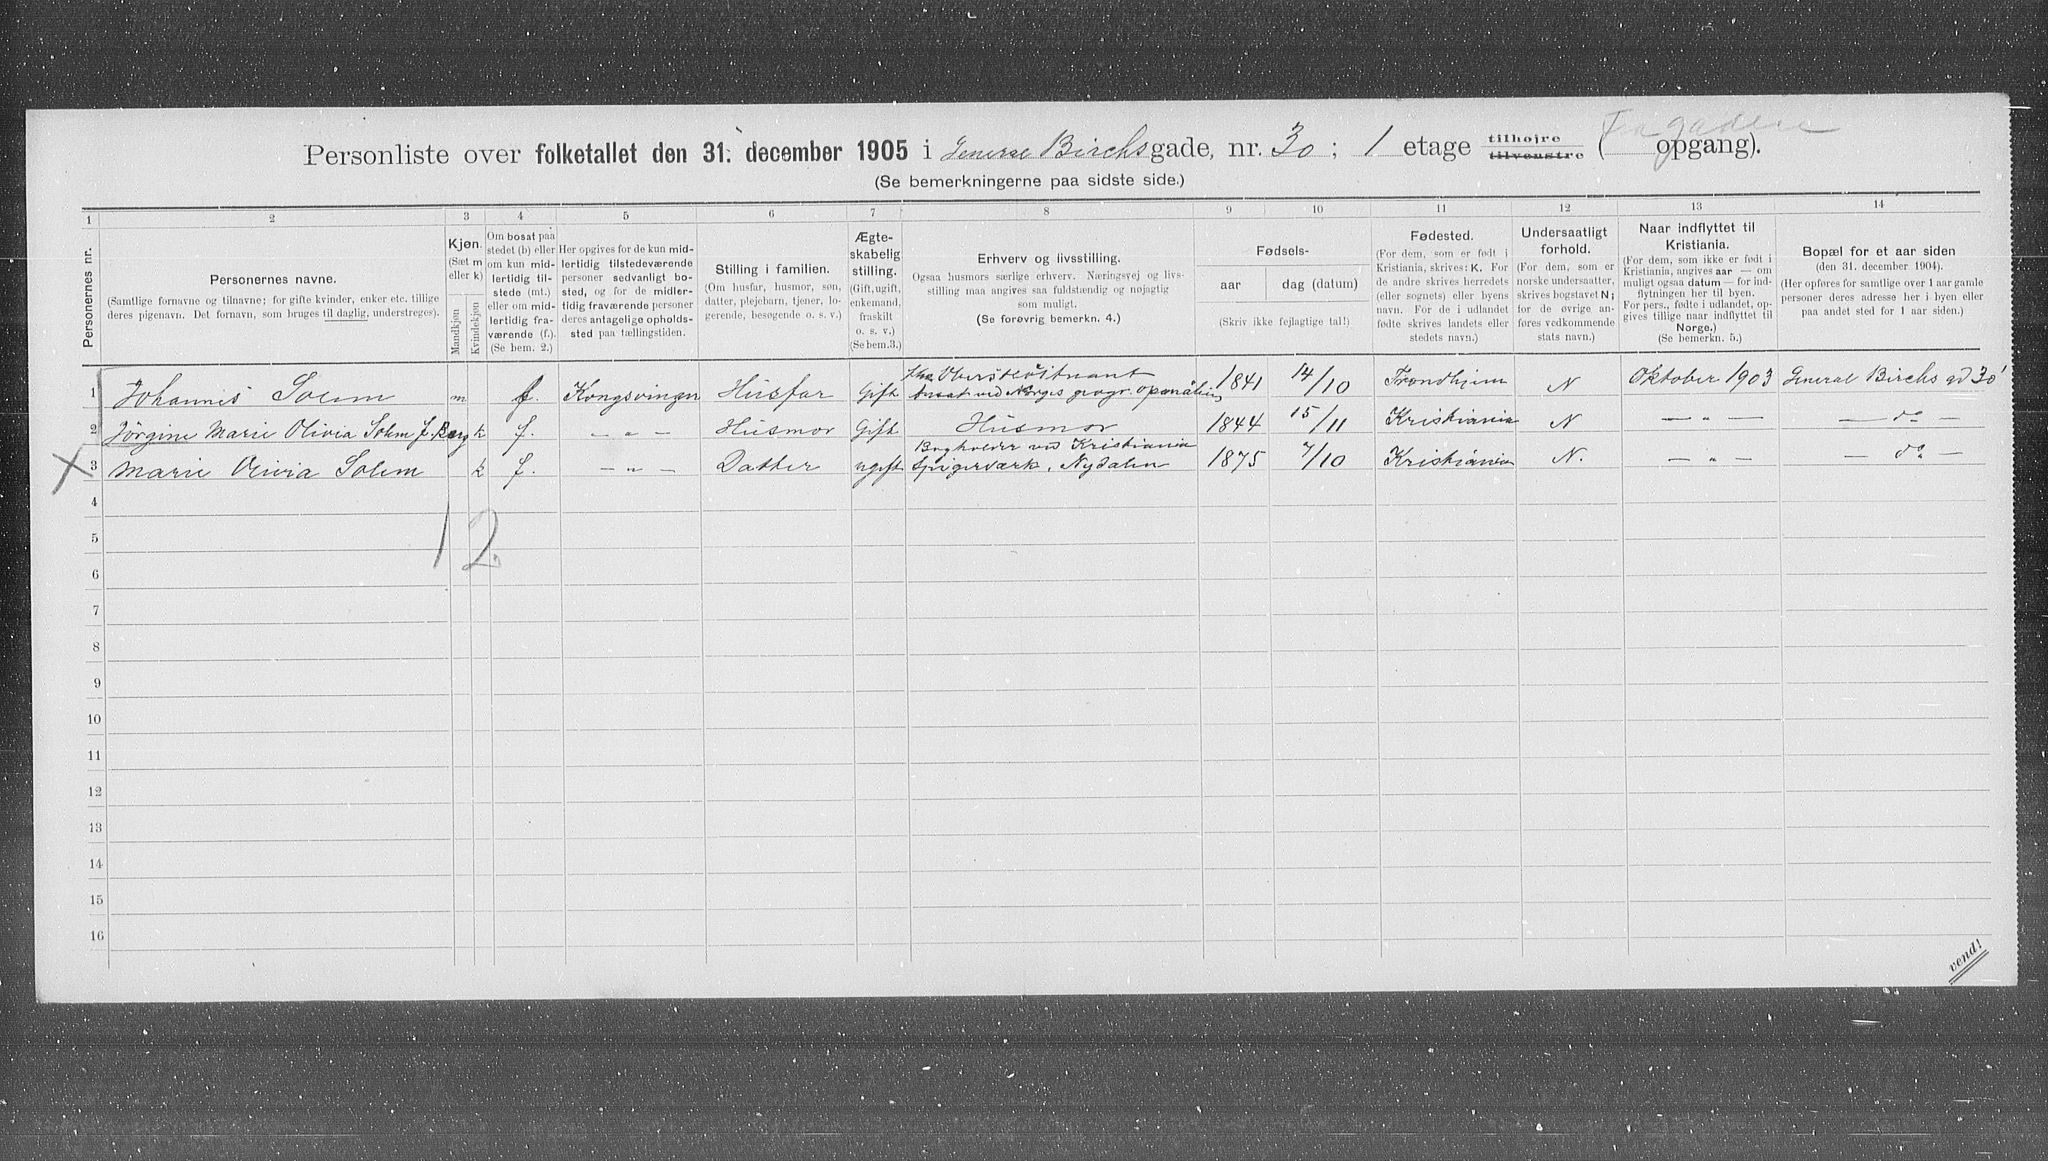 Fagaden
Personliste over folketallet den 31. december 1905 i General Birchsgade, nr. 30; 1 etage tilhøjre tilvenstre ( opgang).
(Se bemerkningerne paa sidste side.)
1 2 3 4 5 6 7 8 9 10 11 12 13 14
Personernes nr.
Personernes navne.
(Samtlige fornavne og tilnavne; for gifte kvinder, enker etc. tillige
deres pigenavn. Det fornavn, som bruges til daglig, understreges).
Kjøn.
(Sæt m
eller k)
Mandkjøn
Kvindekjøn
Om bosat paa
stedet (b) eller
om kun mid-
lertidig til-
stede (mt.)
eller om mid-
lertidig fra-
værende (f.).
(Se bem. 2.)
Her opgives for de kun mid-
lertidig tilstedeværende
personer sedvanligt bo-
sted, og for de midler-
tidig fraværende personer
deres antagelige opholds-
sted paa tællingstiden.
Stilling i familien.
(Om husfar, husmor, søn,
datter, plejebarn, tjener, lo-
gerende, besøgende o. s. v.)
Ægte-
skabelig
stilling.
(Gift, ugift,
enkemand,
fraskilt
o. s. v.)
(Se bem.3.)
Erhverv og livsstilling.
Ogsaa husmors særlige erhverv. Næringsvej og livs-
stilling maa angives saa fuldstændig og nøjagtig
som muligt.
(Se forøvrig bemerkn. 4.)
Fødsels-
aar
dag (datum)
(Skriv ikke fejlagtige tal!)
Fødested.
(For dem, som er født i
Kristiania, skrives: K. For
de andre skrives herredets
(eller sognets) eller byens
navn. For de i udlandet
fødte skrives landets eller
stedets navn.)
Undersaatligt
forhold.
(For dem, som er
norske undersaatter,
skrives bogstavet N;
for de øvrige an-
føres vedkommende
stats navn.)
Naar indflyttet til
Kristiania.
(For dem, som ikke er født i
Kristiania, angives aar — om
muligt ogsaa datum — for ind-
flytningen her til byen.
For pers., fødte i udlandet, op-
gives tillige naar indflyttet til
Norge.)
(Se bemerkn. 5.)
Bopæl for et aar siden
(den 31. december 1904).
(Her opføres for samtlige over 1 aar gamle
personer deres adresse her i byen eller
paa andet sted for 1 aar siden.)
1 Johannes Solem m f. Kongsvinger Husfar Gift Oberstløitnant 1841 14/10 Trondhjem N Oktober 1903 General Birchs gd 30 1
Ansat ved Norges geogr. opmåling
2 Jörgine Marie Olivia Solem f. Berg k f. — „ — Husmor Gift Husmor 1844 15/11 Kristiania N — „ — — do —
X 3 Marie Olivia Solem k f. — „ — Datter ugift Bogholder ved Kristiania 1875 7/10 Kristiania N. — „ — — do —
Spigerværk, Nydalen
4
1 2.
5
6
7
8
9
10
11
12
13
14
15
16
vend!